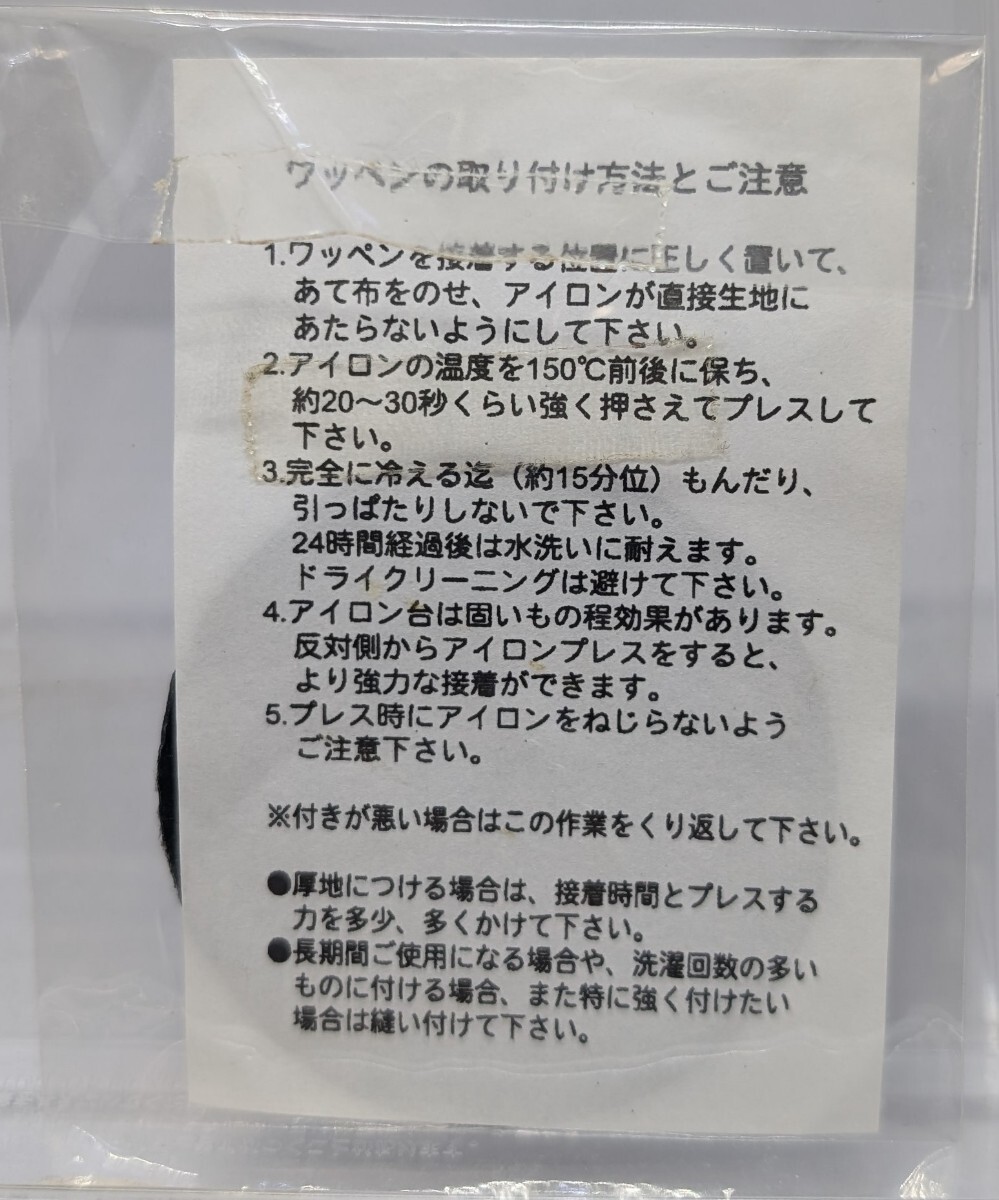 ワッペンの取り付け方法とご注意
1.ワッペンを接着する位置に正しく置いて、
あて布をのせ、アイロンが直接生地に
あたらないようにして下さい。
2.アイロンの温度を150℃前後に保ち、
約20～30秒くらい強く押さえてプレスして
下さい。
3.完全に冷える迄（約15分位）もんだり、
引っぱたりしないで下さい。
24時間経過後は水洗いに耐えます。
ドライクリーニングは避けて下さい。
4.アイロン台は固いもの程効果があります。
反対側からアイロンプレスをすると、
より強力な接着ができます。
5.プレス時にアイロンをねじらないよう
ご注意下さい。
※付きが悪い場合はこの作業をくり返して下さい。
●厚地につける場合は、接着時間とプレスする
力を多少、多くかけて下さい。
●長期間ご使用になる場合や、洗濯回数の多い
ものに付ける場合、また特に強く付けたい
場合は縫い付けて下さい。